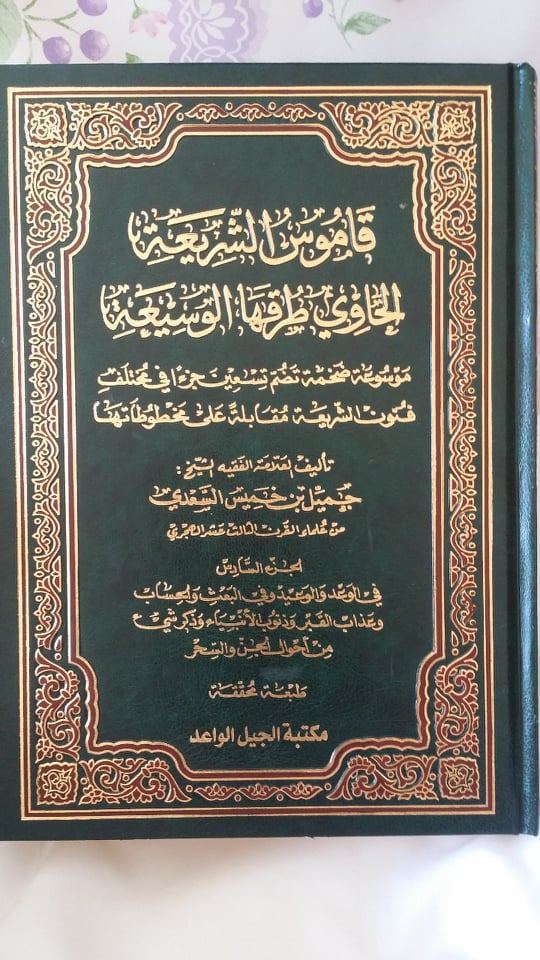 قَامُوسُ الشَّرِيعَةِ
الحَاوِي طُرُقهَا الوَسِيعَةِ
مَوْسُوعَة ضَخْمَة تَضُمّ تِسْعِينَ جُزءًا في مُخْتَلَفِ
فُنونِ الشّريعَةِ مُقَابلةً عَلى مَخطُوطَاتهَا
تأليف العَلّامَة الفَقيه الشيخ :
جُمَيّل بن خَميس السَّعْدِي
من عُلماء القَرن الثالث عَشر الهجري
الجزء السَّادِسُ
في الوَعْد وَالوَعِيْدْ وفي البَعْث وَالحِسَاب
وعَذابِ القَبْر وَذنُوْبِ الأَنْبيَاءِ وَذكرِ شَيْءٍ
مِنْ أحوَال الجِنّ وَالسِّحْر
طَبعَة مُحَقّقَة
مكتبة الجيل الواعد